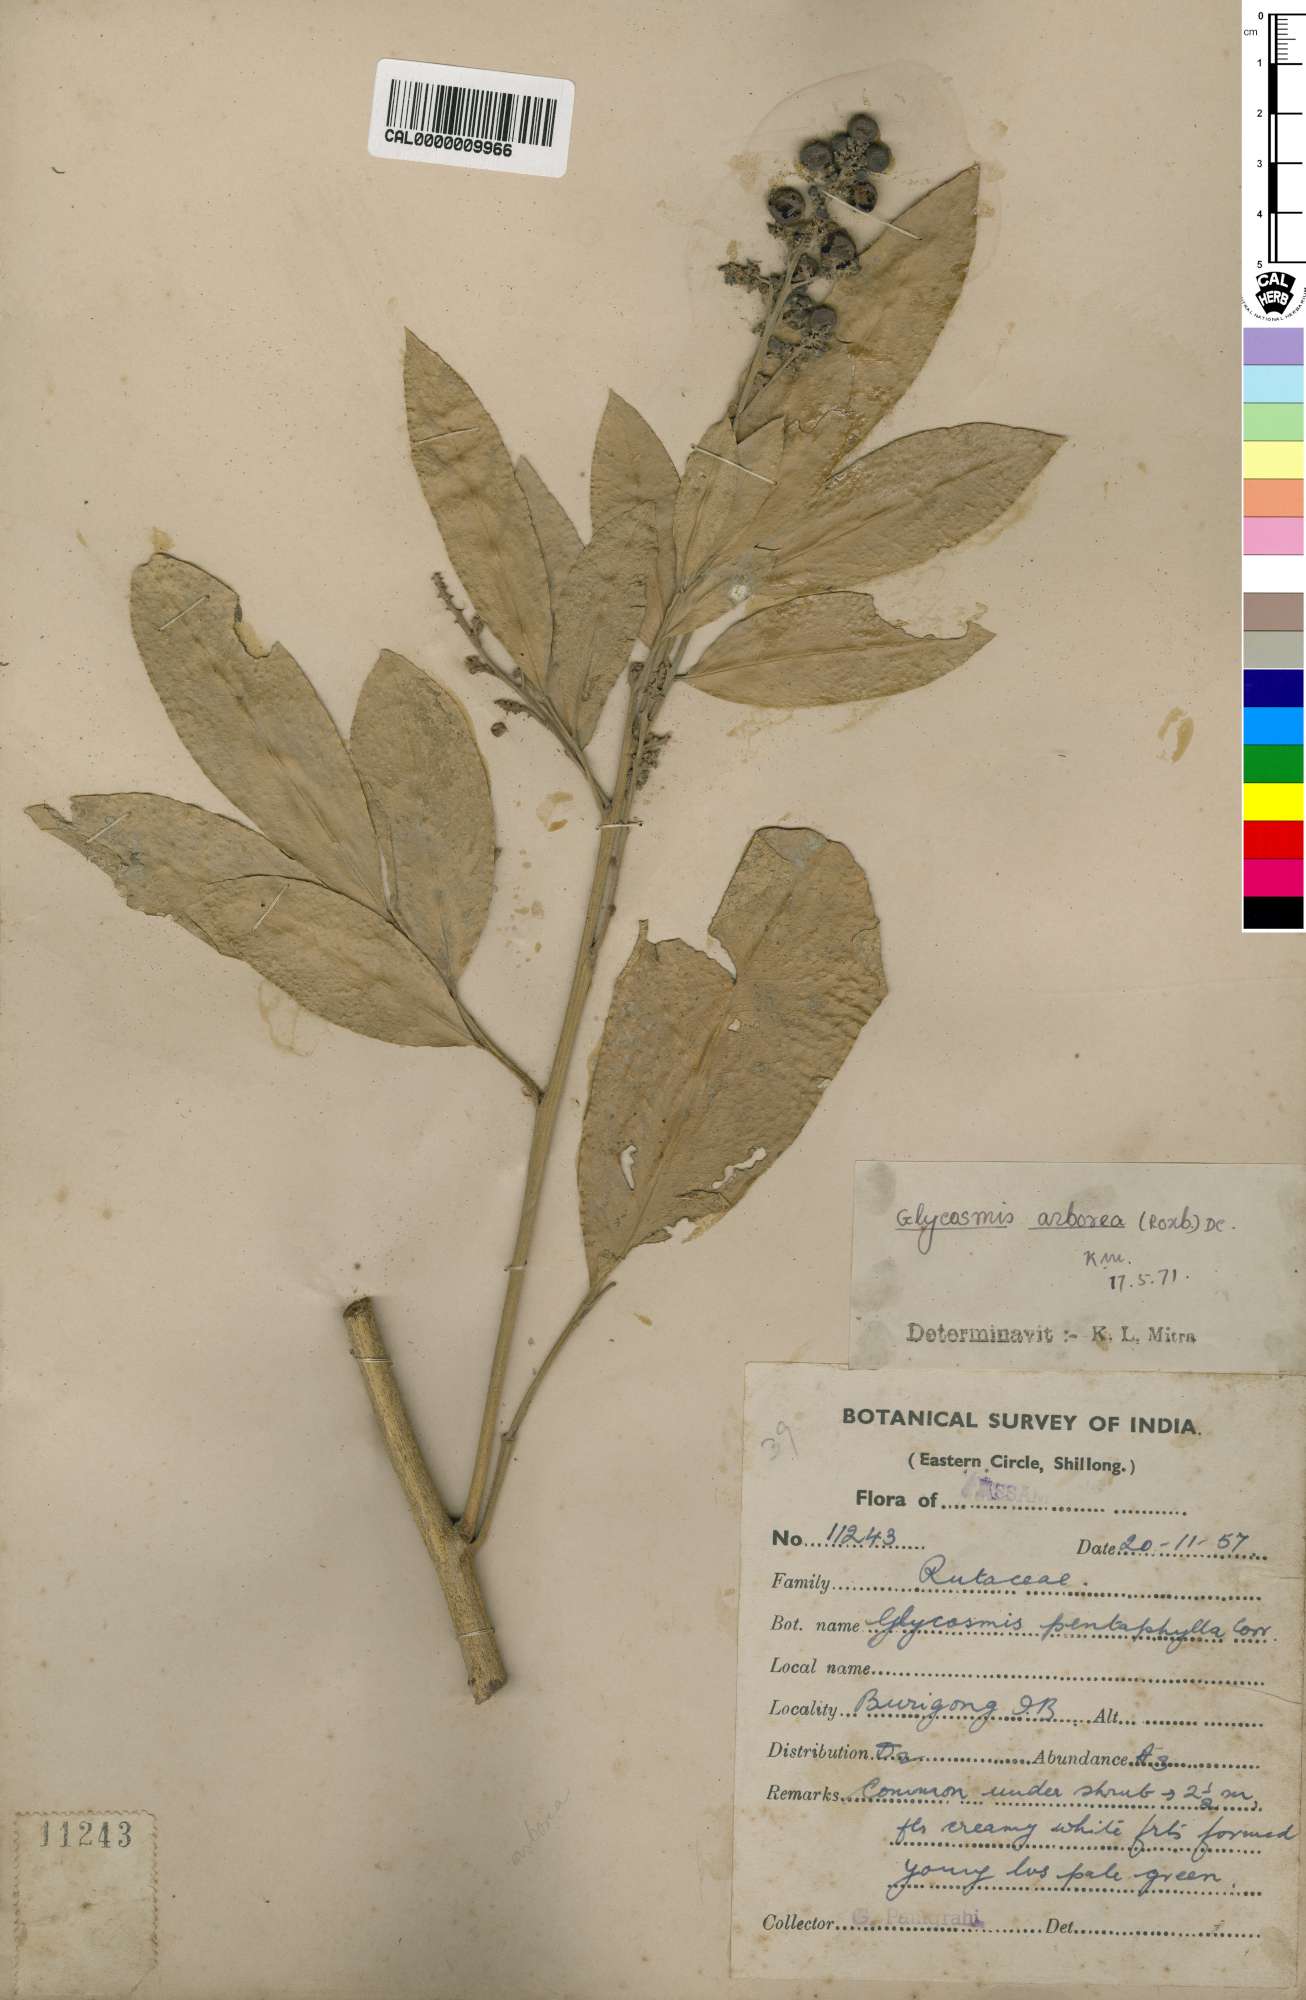 CAL0000009966
0
cm
1
2
3
4
5
CAL
HERB
Glycosmis arborea (Roxb.) DC.
K.M.
17.5.71.
Determinavit :- K. L. Mitra
39
BOTANICAL SURVEY OF INDIA.
(Eastern Circle, Shillong.)
Flora of ASSAM
No. 11243 Date 20-11-57
Family Rutaceae.
Bot. name Glycosmis pentaphylla Corr.
Local name
Locality Burigong I.B Alt.
Distribution Abundance A3
Remarks Common under shrub 2½ m,
fls creamy white frts formed
young lvs pale green.
Collector G. Panigrahi Det.
arborea
11243